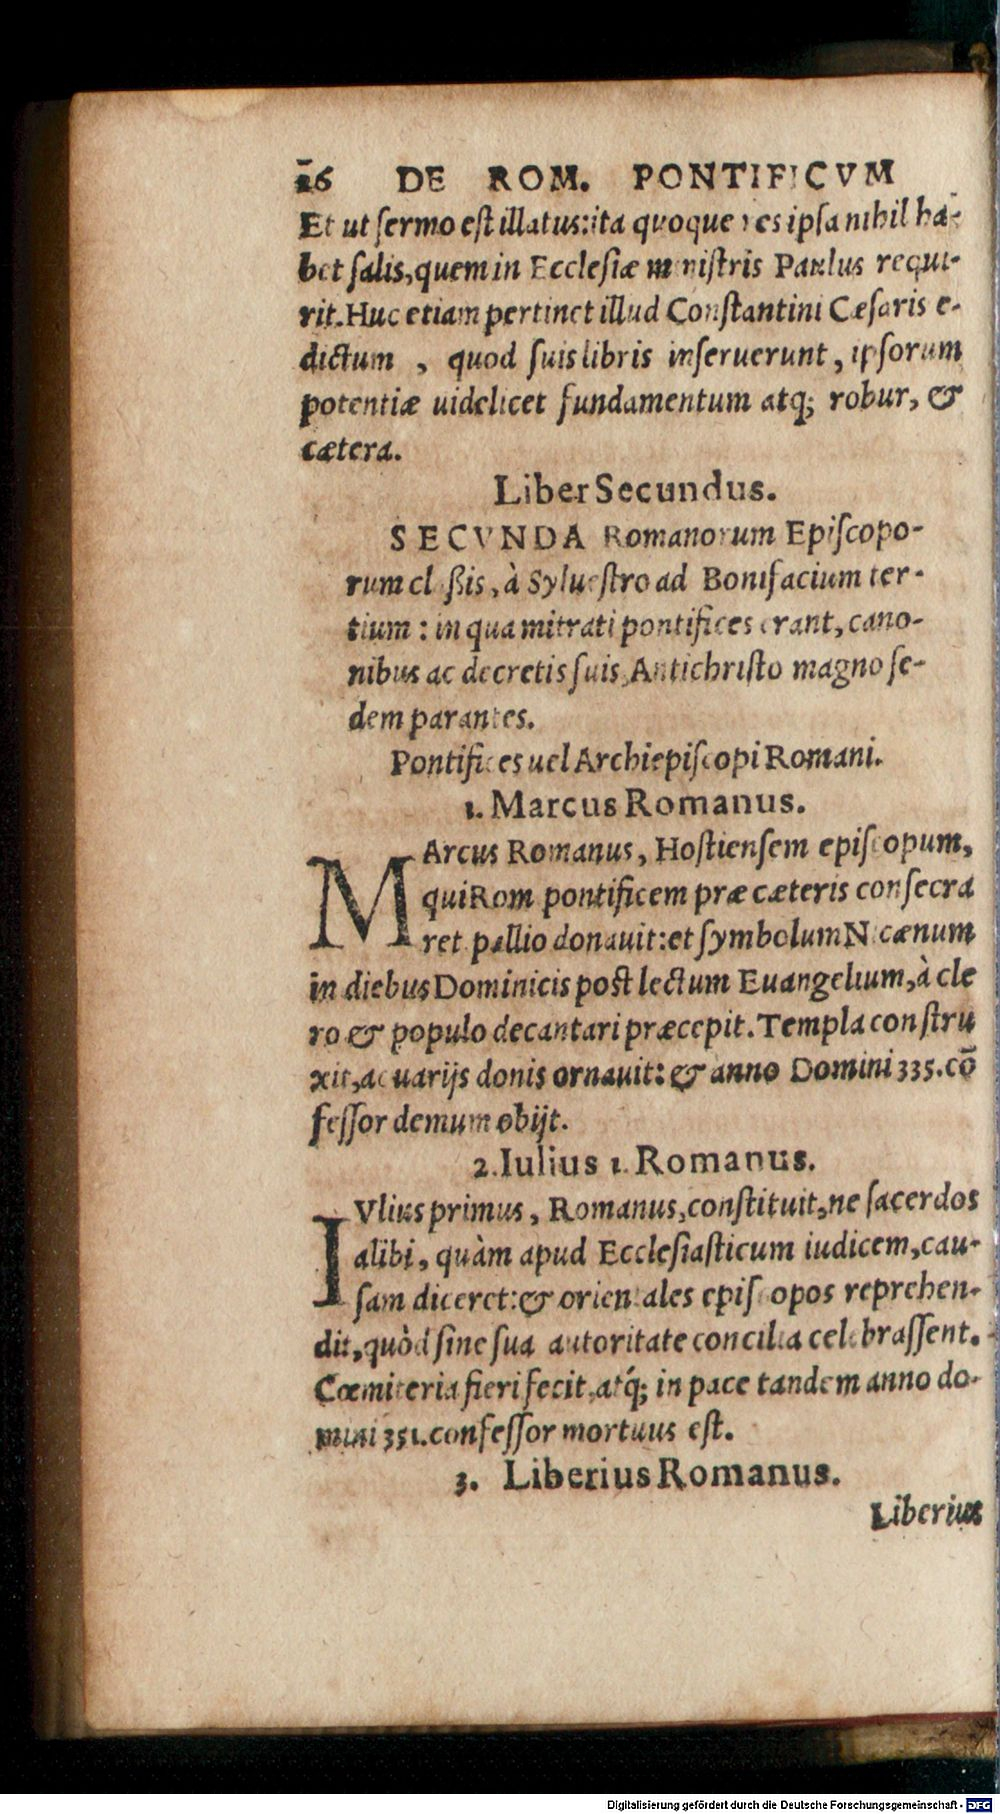 26 DE ROM. PONTIFICVM
Et ut ſermo eſt illatus: ita quoque res ipſa nihil ha-
bet ſalis, quem in Eccleſiæ miniſtris Paulus requi-
rit. Huc etiam pertinet illud Conſtantini Cæſaris e-
dictum , quod ſuis libris inſeruerunt, ipſorum
potentiæ uidelicet fundamentum atq; robur, &
cætera.
Liber Secundus.
SECVNDA Romanorum Epiſcopo-
rum claßis, à Sylueſtro ad Bonifacium ter-
tium : in qua mitrati pontifices erant, cano-
nibus ac decretis ſuis, Antichriſto magno ſe-
dem parantes.
Pontifices uel Archiepiſcopi Romani.
1. Marcus Romanus.
MArcus Romanus, Hoſtienſem epiſcopum,
qui Rom pontificem præ cæteris conſecra
ret pallio donauit: et ſymbolum Nicænum
in diebus Dominicis poſt lectum Euangelium, à cle
ro & populo decantari præcepit. Templa conſtru
xit, ac uarijs donis ornauit: & anno Domini 335. cō
feſſor demum obijt.
2. Iulius 1. Romanus.
IVlius primus, Romanus, conſtituit, ne ſacerdos
alibi, quàm apud Eccleſiaſticum iudicem, cau-
ſam diceret: & orientales epiſcopos reprehen-
dit, quòd ſine ſua autoritate concilia celebraſſent.
Cœmiteria fieri fecit, atq́; in pace tandem anno do-
mini 351. confeſſor mortuus eſt.
3. Liberius Romanus.
Liberius
Digitalisierung gefördert durch die Deutsche Forschungsgemeinschaft - DFG